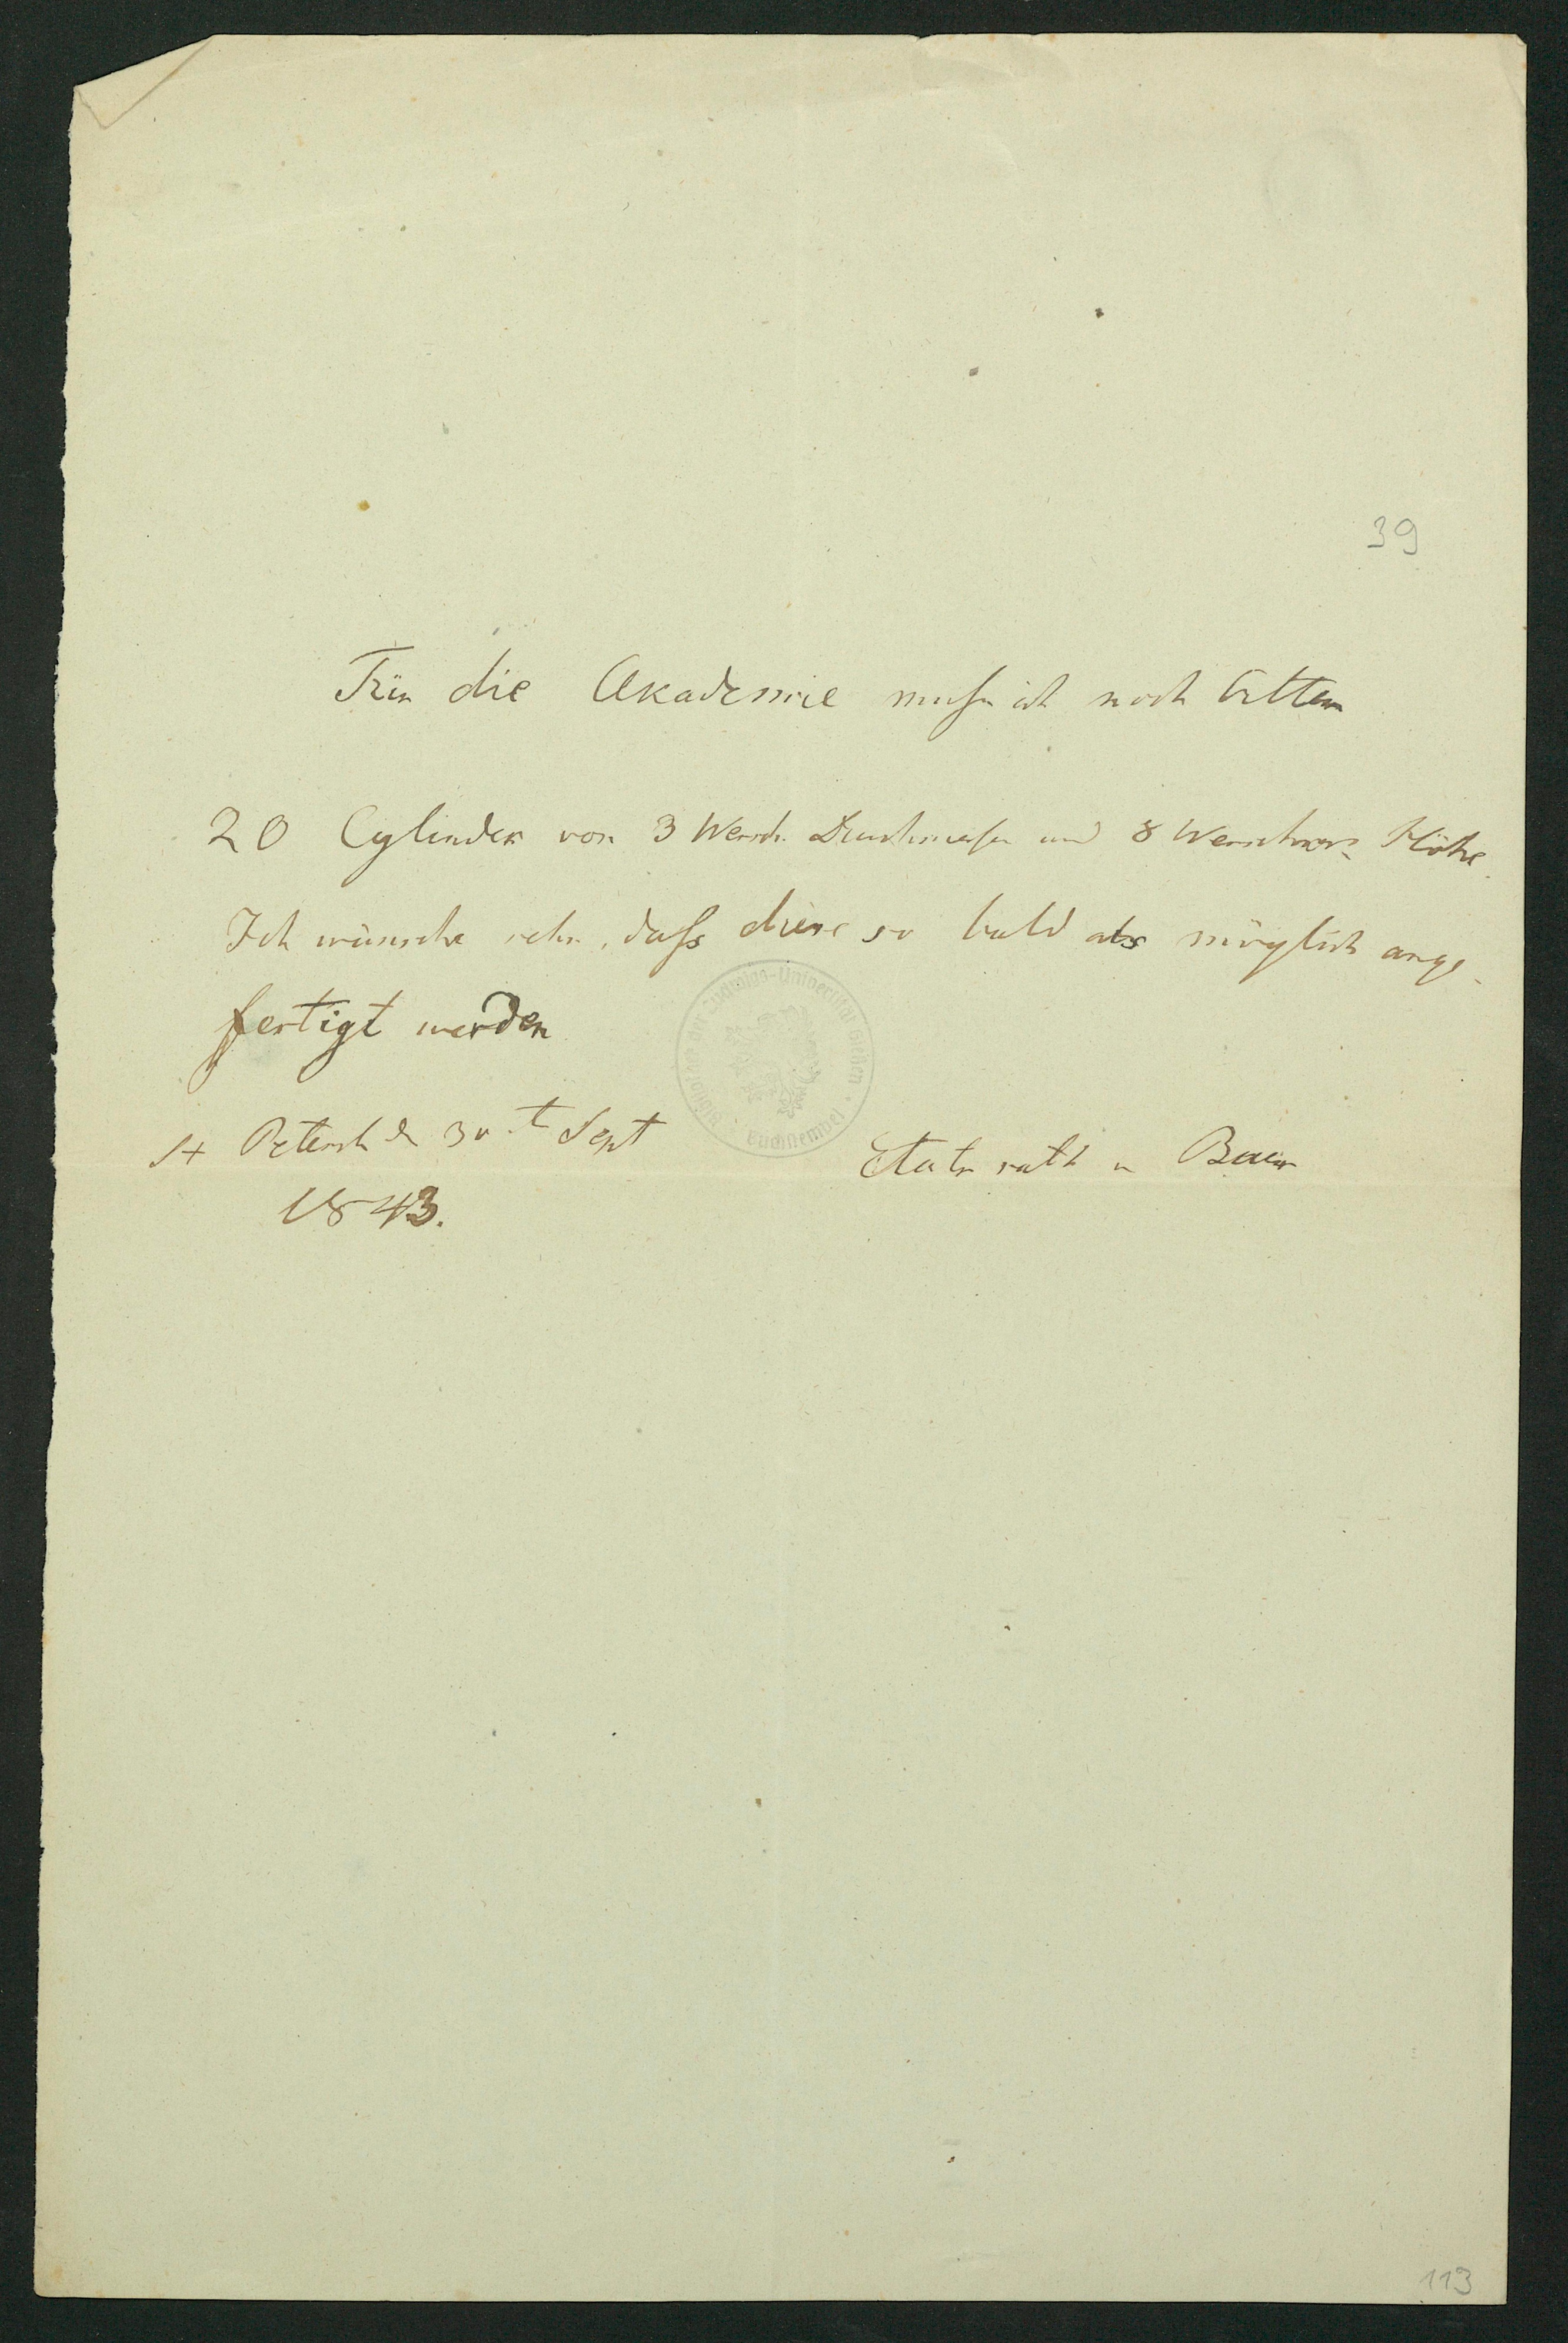 39
Für die Akademie muss ich noch bitten
20 Cylinder von 3 Wersch. Durchmesser und 8 Werschock Höhe.
Ich wünsche sehr, dass diese so bald als möglich ange-
fertigt werden
St Petersb d 30t Sept
1843.
Etatsrath v Baer
Bibliothek der Ludwigs-Universität Gießen · Buchstempel ·
113